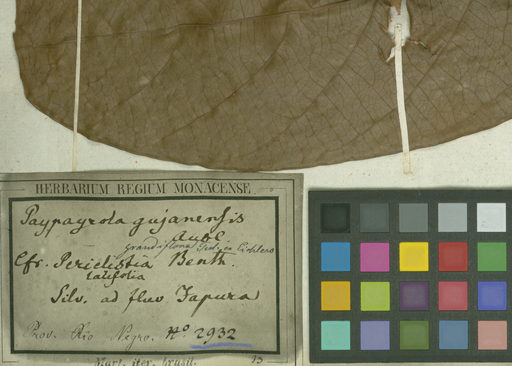 HERBARIUM REGIUM MONACENSE.
Paypayrola gujanensis
Aubl.
grandiflora Tul. in Eichlero
Cfr. Peridistia Benth.
latifolia
Silv. ad fluv Japura
Prov. Rio Negro. No 2932
Mart. iter. brasil. 13